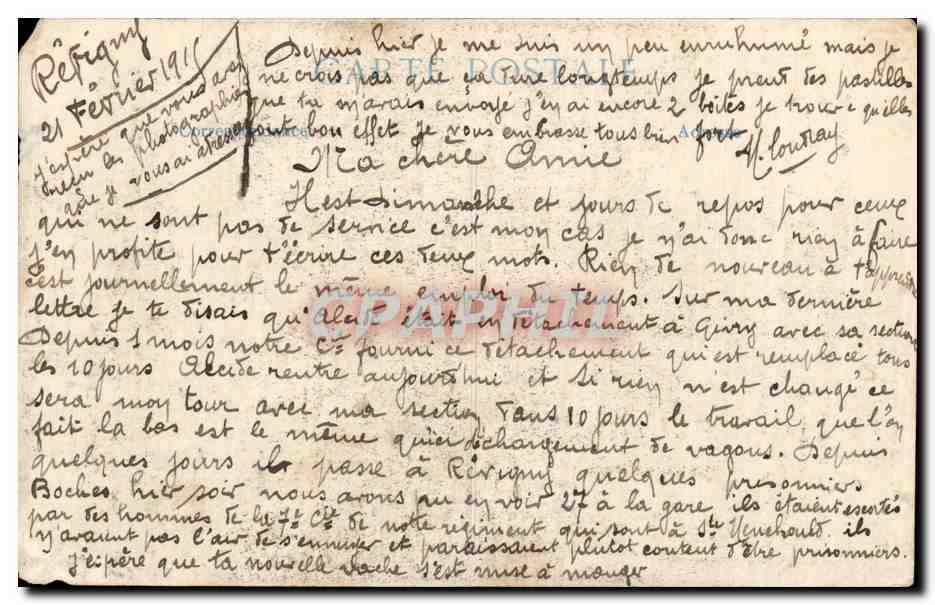 Révigny
21 Février 1915
Ma chère Amie
Il est Dimanche et jours de repos pour ceux
qui ne sont pas de service c'est mon cas je n'ai donc rien à faire
j'en profite pour t'écrire ces deux mots. Rien de nouveau à t'apprendre
c'est journellement le même emploi du temps. Sur ma dernière
lettre je te disais qu'Alcide était en détachement à Givry avec sa section
Depuis 1 mois notre Cie fourni ce détachement qui est remplacé tous
les 10 jours Alcide rentre aujourd'hui et si rien n'est changé ce
sera mon tour avec ma section dans 10 jours le travail que l'on
fait la bas est le même qu'ici déchargement de vagons. Depuis
quelques jours il passe à Révigny quelques prisonniers
Boches hier soir nous avons pu en voir 27 à la gare ils étaient escortés
par des hommes de la 7e Cie de notre régiment qui sont à Ste Menehould ils
n'avaient pas l'air de s'ennuyer et paraissaient plutot content d'être prisonniers.
J'éspère que ta nouvelle vache s'est mise à manger
Depuis hier je me suis un peu enrhumé mais je
ne crois pas que ça dure longtemps je prend des pastilles
que tu m'avais envoyé j'en ai encore 2 boites je trouve qu'elles
font bon effet je vous embrasse tous bien fort
j'éspère que vous avez
les photographies
que je vous ai adressé
CARTE POSTALE
Correspondance
Adresse
CPAPHIL